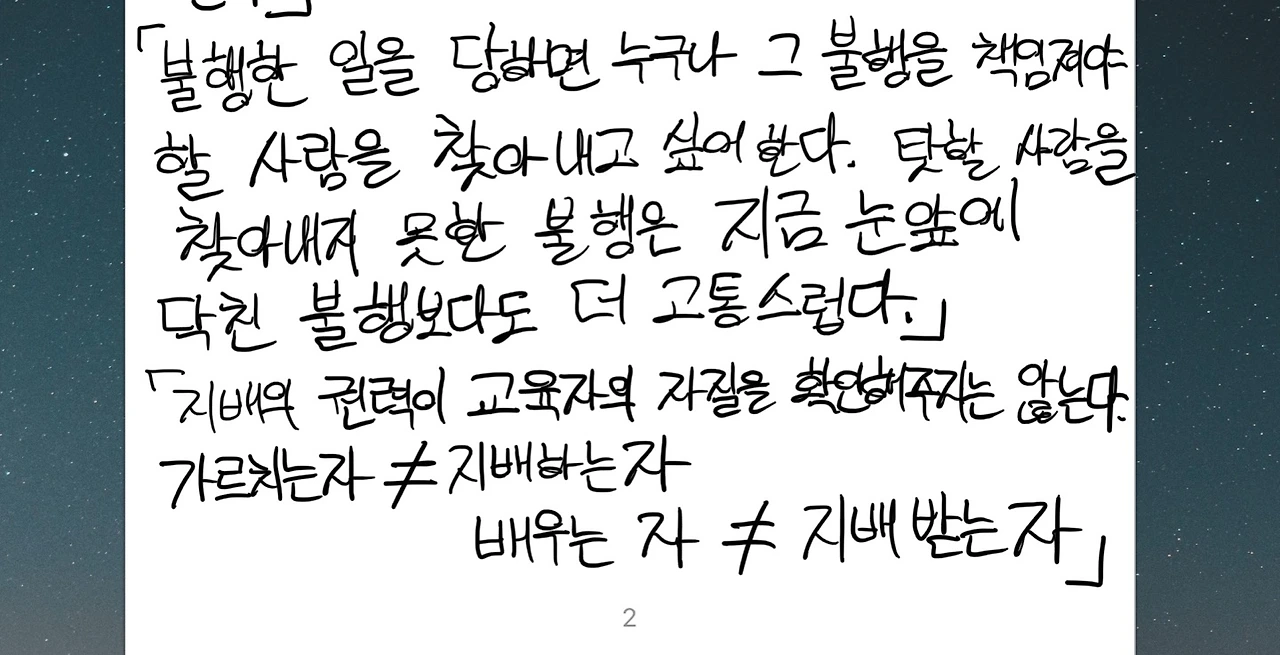 」
「불행한 일을 당하면 누구나 그 불행을 책임져야
할 사람을 찾아내고 싶어한다. 탓할 사람을
찾아내지 못한 불행은 지금 눈앞에
닥친 불행보다도 더 고통스럽다.」
「지배와 권력이 교육자의 자질을 확인해주지는 않는다.
가르치는자 ≠ 지배하는자
배우는 자 ≠ 지배받는자」
2